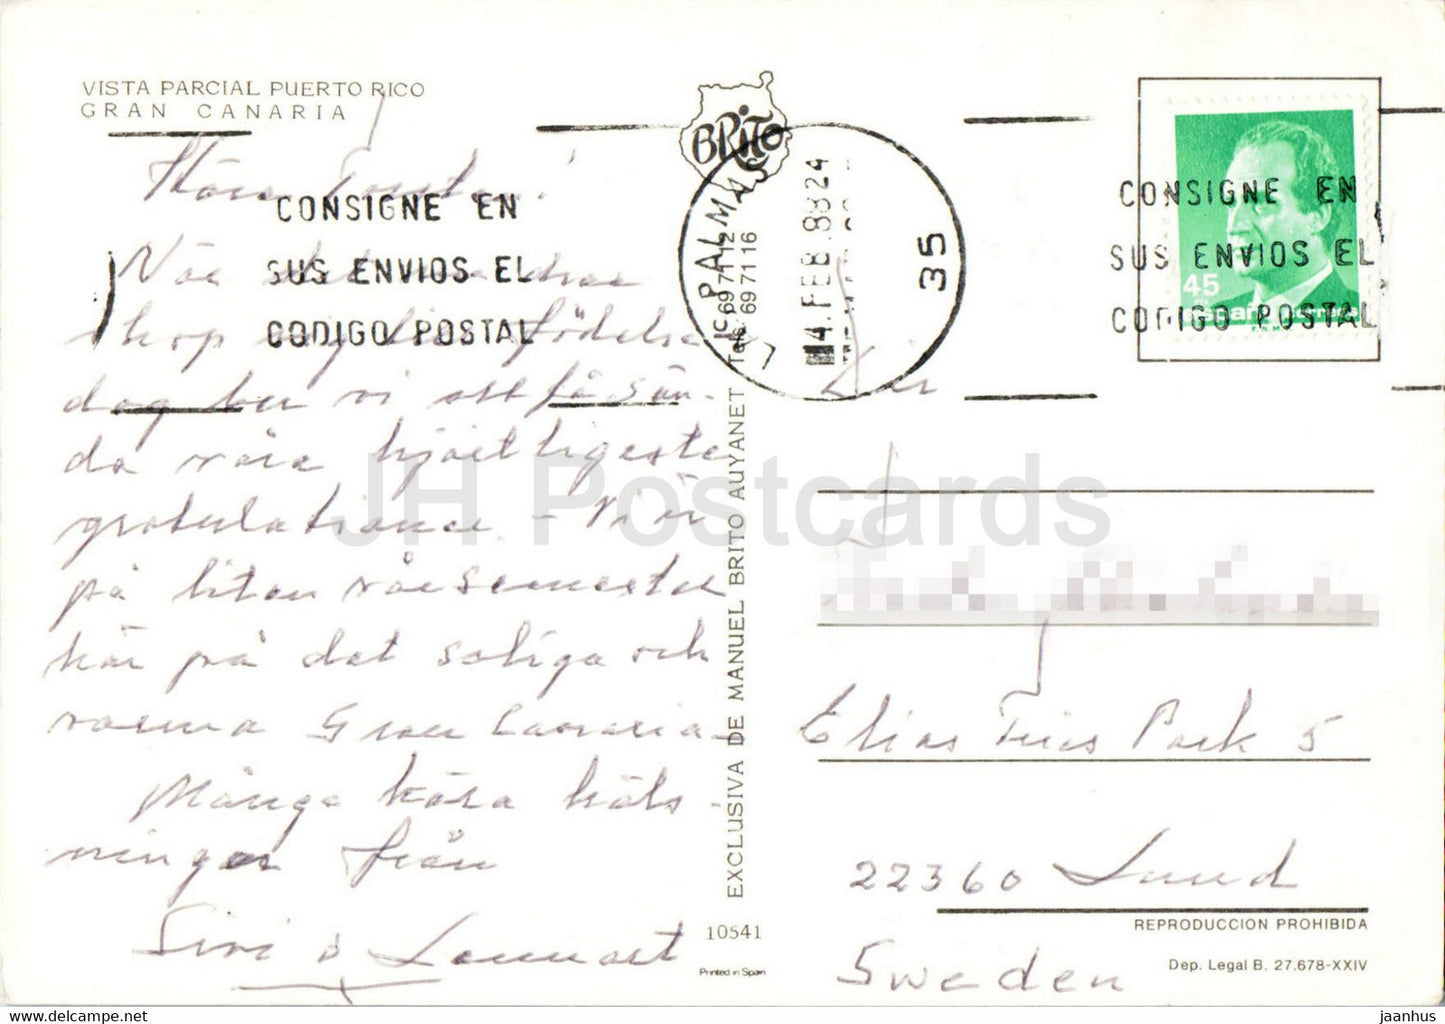 VISTA PARCIAL PUERTO RICO
GRAN CANARIA
BRITO
CONSIGNE EN
SUS ENVIOS EL
CODIGO POSTAL
LAS PALMAS
4. FEB. 88 24
35
CONSIGNE EN
SUS ENVIOS EL
CODIGO POSTAL
45
España correos
Kära
När
födelse
dag ber vi att få sän-
da våra hjärtligaste
gratulationer - Vi är
på liten
här på det soliga och
varma Gran Canaria
Många kära häls-
ningar från
Siri & Lennart
EXCLUSIVA DE MANUEL BRITO AUYANET Tels. 69 71 12
69 71 16
10541
Printed in Spain
Elias Fries Park 5
22360 Lund
Sweden
REPRODUCCION PROHIBIDA
Dep. Legal B. 27.678-XXIV
JH Postcards
www.delcampe.net
jaanhus